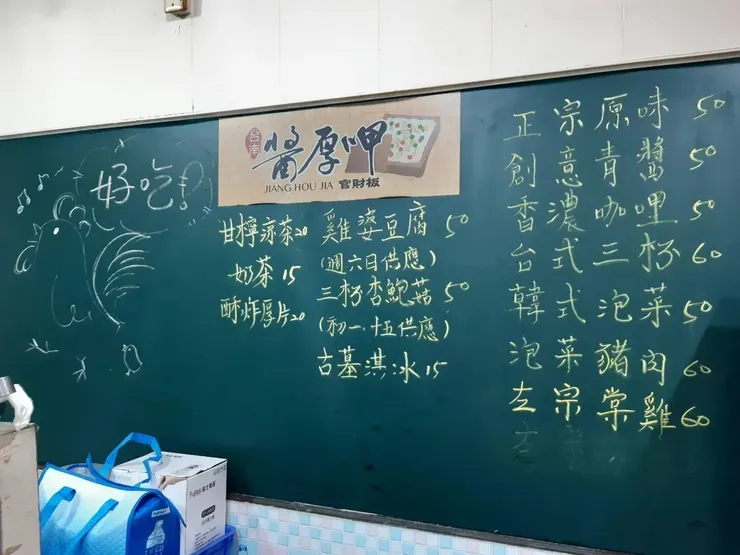 好吃!
台南
醬厚呷
JIANG HOU JIA 官財板
甘檸涼茶20
奶茶15
酥炸厚片20
雞婆豆腐 50
(週六日供應)
三杯杏鮑菇 50
(初一、十五供應)
古基淇:冰15
正宗原味 50
創意青醬 50
香濃咖哩 50
台式三杯 60
韓式泡菜 50
泡菜豬肉 60
左宗棠雞 60
Fujitek